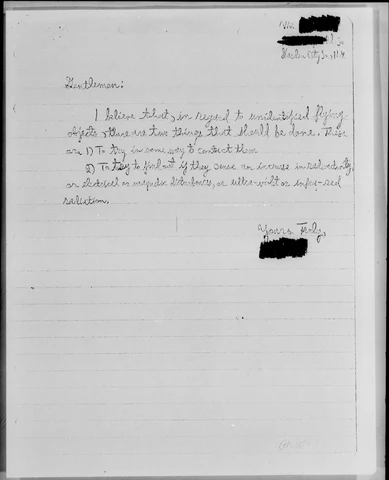 Gentlemen:
I believe that, in regard to unidentified flying
objects, there are two things that should be done. These
are 1) To try in some way to contact them
2) To try to find out if they cause an increase in radioactivity,
or electrical or magnetic disturbances, or ultra-violet or infra-red
radiation.
Yours Truly,